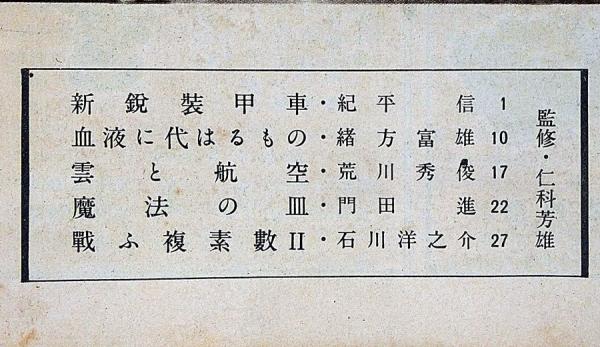 新鋭裝甲車・紀平信 1
血液に代はるもの・緒方富雄 10
雲と航空・荒川秀俊 17
魔法の皿・門田進 22
戰ふ複素數II・石川洋之介 27
監修・仁科芳雄